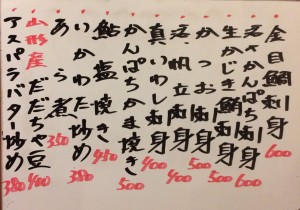 金目鯛刺身 600
かんぱち刺身 600
生かじき鮪刺身 500
かつお刺身 500
帆立刺身 400
真いわし刺身 400
かんぱちかま焼き 500
鮎塩焼き 450
いかわた炒め 380
あら煮 350
山形産だだちゃ豆 400
アスパラバター炒め 380